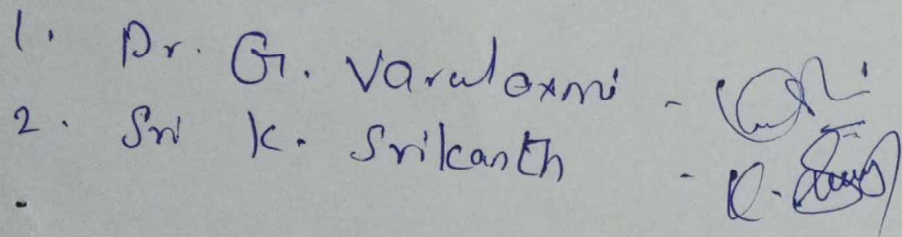 1. Dr. G. Varalaxmi -
2. Sri K. Srikanth - K.